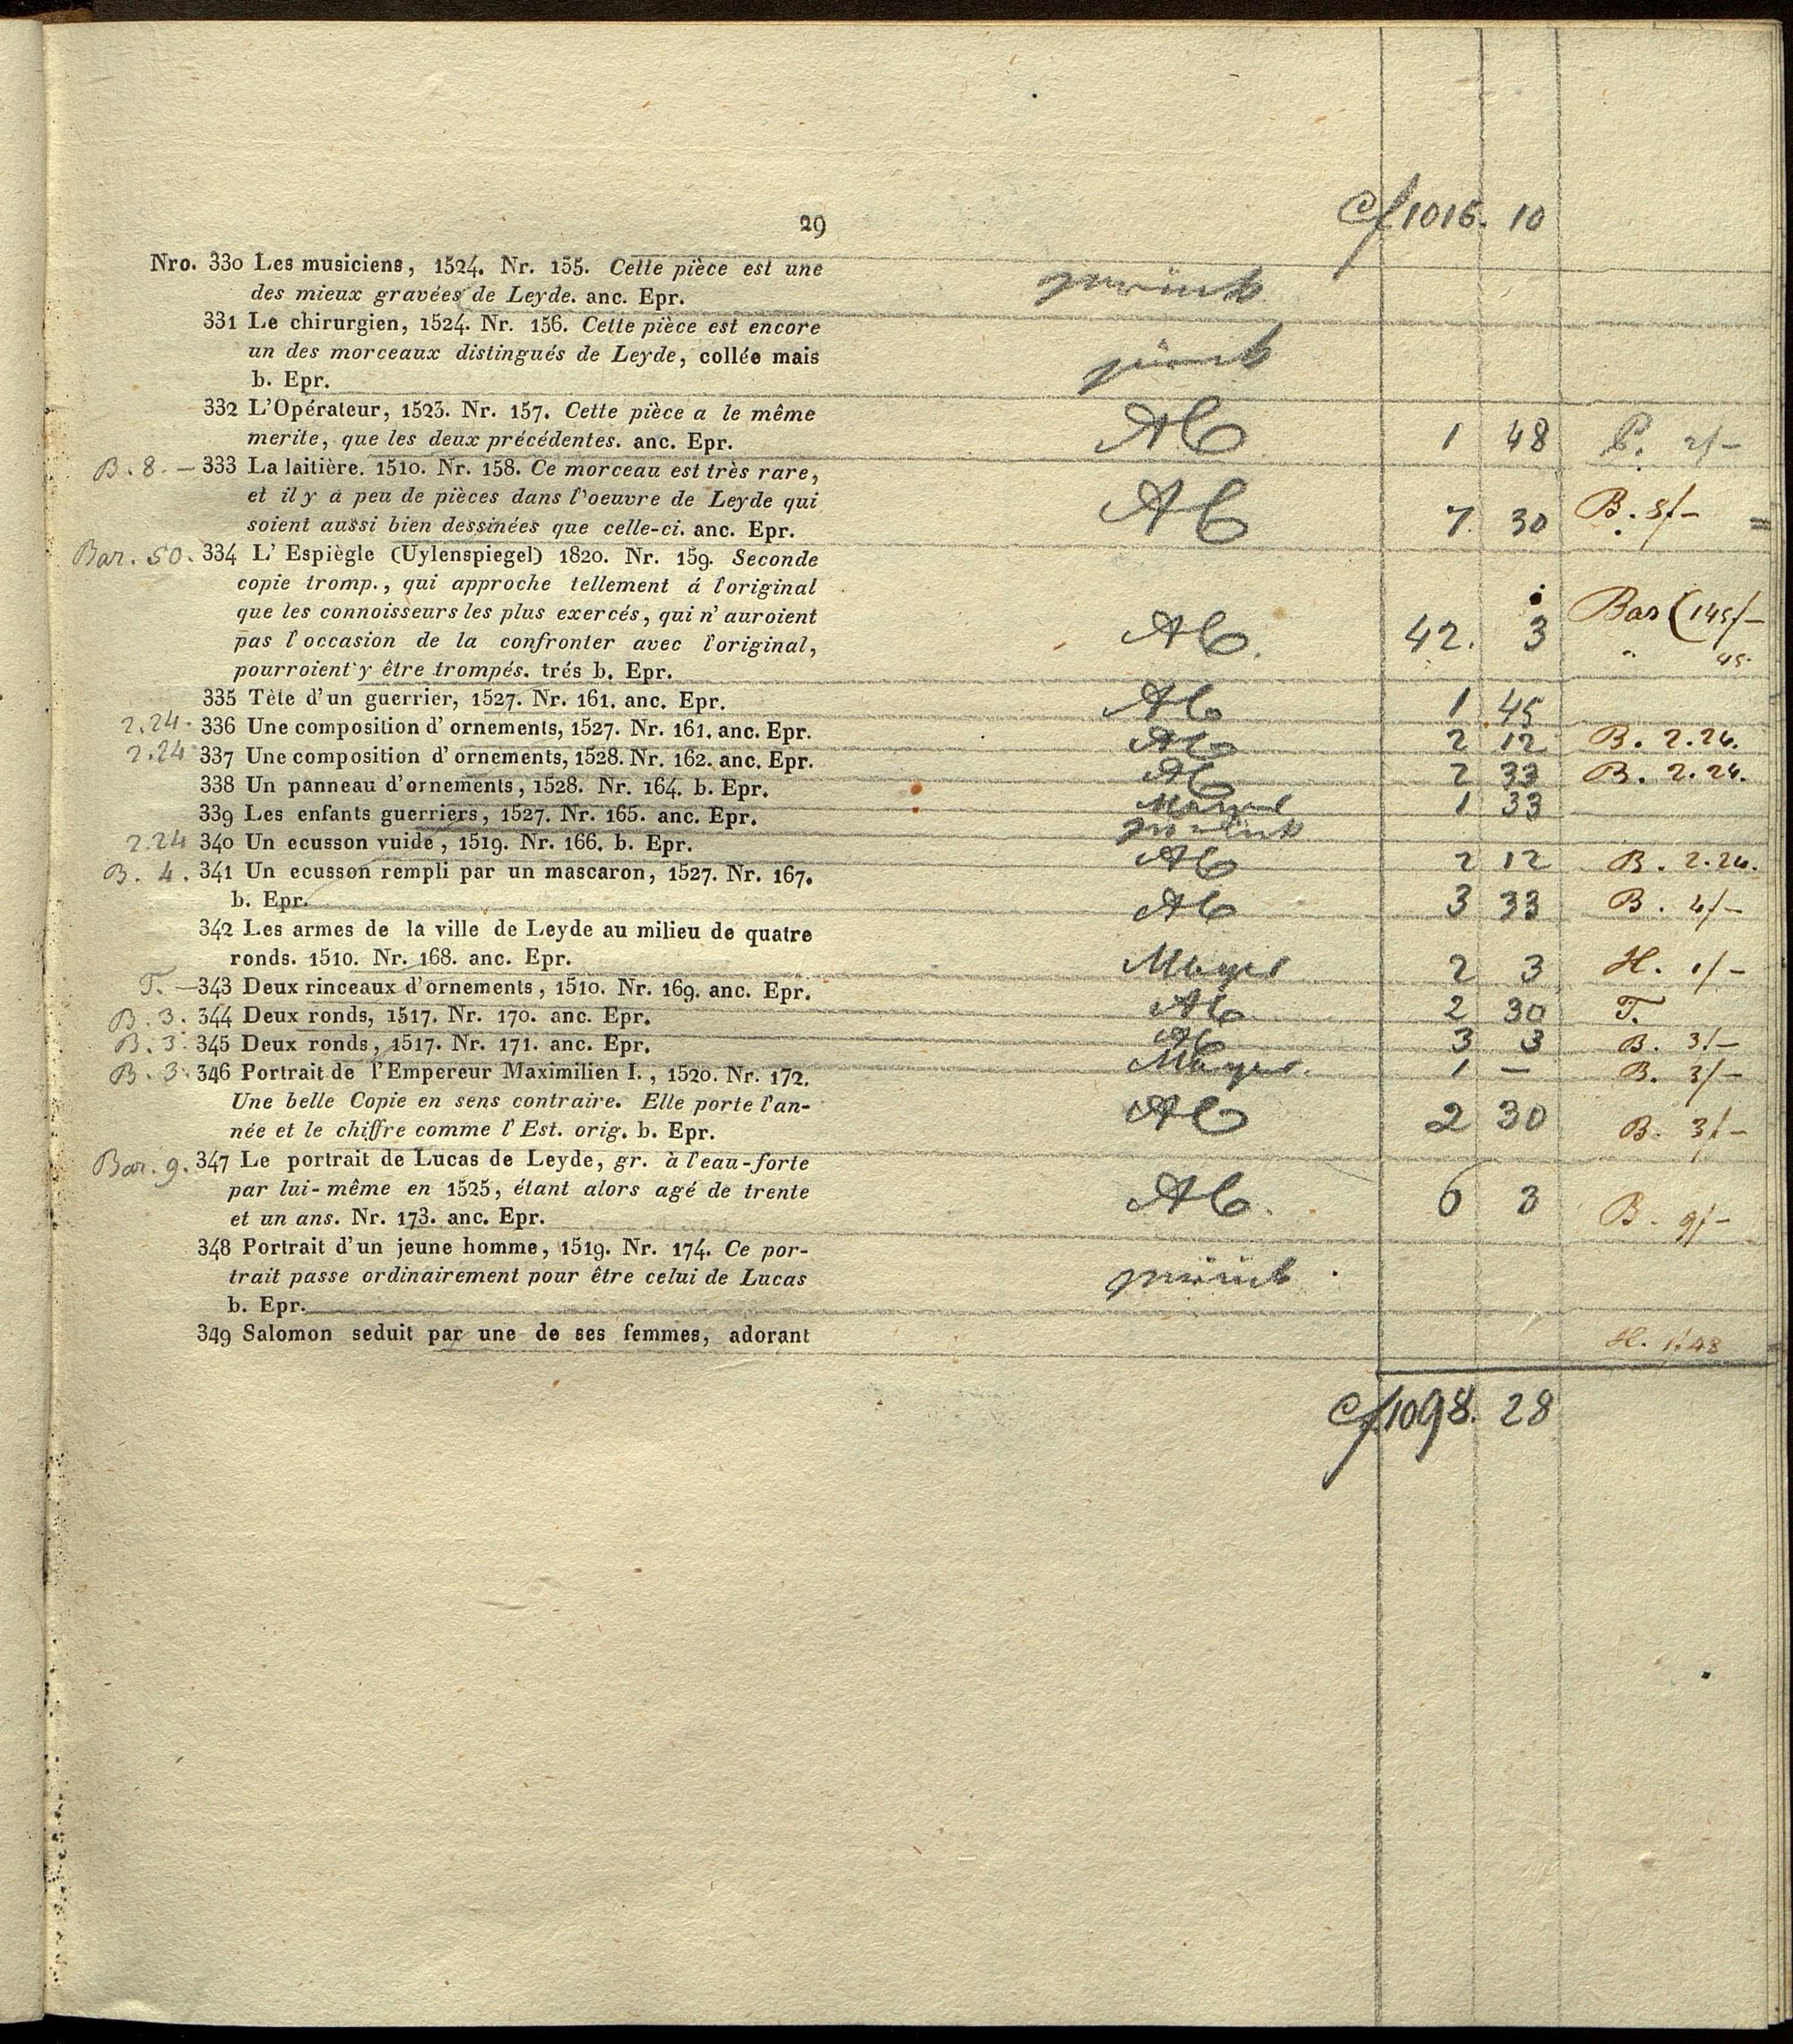 29
Cf 1016. 10
Nro. 330 Les musiciens, 1524. Nr. 155. Cette pièce est une
des mieux gravées de Leyde. anc. Epr.
331 Le chirurgien, 1524. Nr. 156. Cette pièce est encore
un des morceaux distingués de Leyde, collée mais
b. Epr.
332 L'Opérateur, 1523. Nr. 157. Cette pièce a le même
merite, que les deux précédentes. anc. Epr. 1 48 2/–
B. 8. – 333 La laitière. 1510. Nr. 158. Ce morceau est très rare,
et il y a peu de pièces dans l'oeuvre de Leyde qui
soient aussi bien dessinées que celle-ci. anc. Epr. 7 30 B. 8/–
Bar. 50. 334 L' Espiègle (Uylenspiegel) 1820. Nr. 159. Seconde
copie tromp., qui approche tellement á l'original
que les connoisseurs les plus exercés, qui n' auroient
pas l'occasion de la confronter avec l'original, 42. 3 Bar (145/–
pourroient y être trompés. trés b. Epr. 45.
335 Tète d'un guerrier, 1527. Nr. 161. anc. Epr. 1 45
2.24. 336 Une composition d' ornements, 1527. Nr. 161. anc. Epr. 2 12 B. 2.24.
2.24 337 Une composition d' ornements, 1528. Nr. 162. anc. Epr. 2 33 B. 2.24.
338 Un panneau d'ornements, 1528. Nr. 164. b. Epr. 1 33
339 Les enfants guerriers, 1527. Nr. 165. anc. Epr.
2.24 340 Un ecusson vuide, 1519. Nr. 166. b. Epr. 2 12 B. 2.24.
B. 4. 341 Un ecusson rempli par un mascaron, 1527. Nr. 167.
b. Epr. 3 33 B. 4/–
342 Les armes de la ville de Leyde au milieu de quatre
ronds. 1510. Nr. 168. anc. Epr. 2 3 H. 1/–
T. – 343 Deux rinceaux d'ornements, 1510. Nr. 169. anc. Epr. 2 30 T.
B. 3. 344 Deux ronds, 1517. Nr. 170. anc. Epr. 3 3 B. 3/–
B. 3. 345 Deux ronds, 1517. Nr. 171. anc. Epr. 1 – B. 3/–
B. 3. 346 Portrait de l'Empereur Maximilien I., 1520. Nr. 172.
Une belle Copie en sens contraire. Elle porte l'an-
née et le chiffre comme l'Est. orig. b. Epr. 2 30 B. 3/–
Bar. 9. 347 Le portrait de Lucas de Leyde, gr. à l'eau-forte
par lui-même en 1525, étant alors agé de trente
et un ans. Nr. 173. anc. Epr. 6 3 B. 9/–
348 Portrait d'un jeune homme, 1519. Nr. 174. Ce por-
trait passe ordinairement pour être celui de Lucas
b. Epr.
349 Salomon seduit par une de ses femmes, adorant H. 1.48
Cf 1098. 28